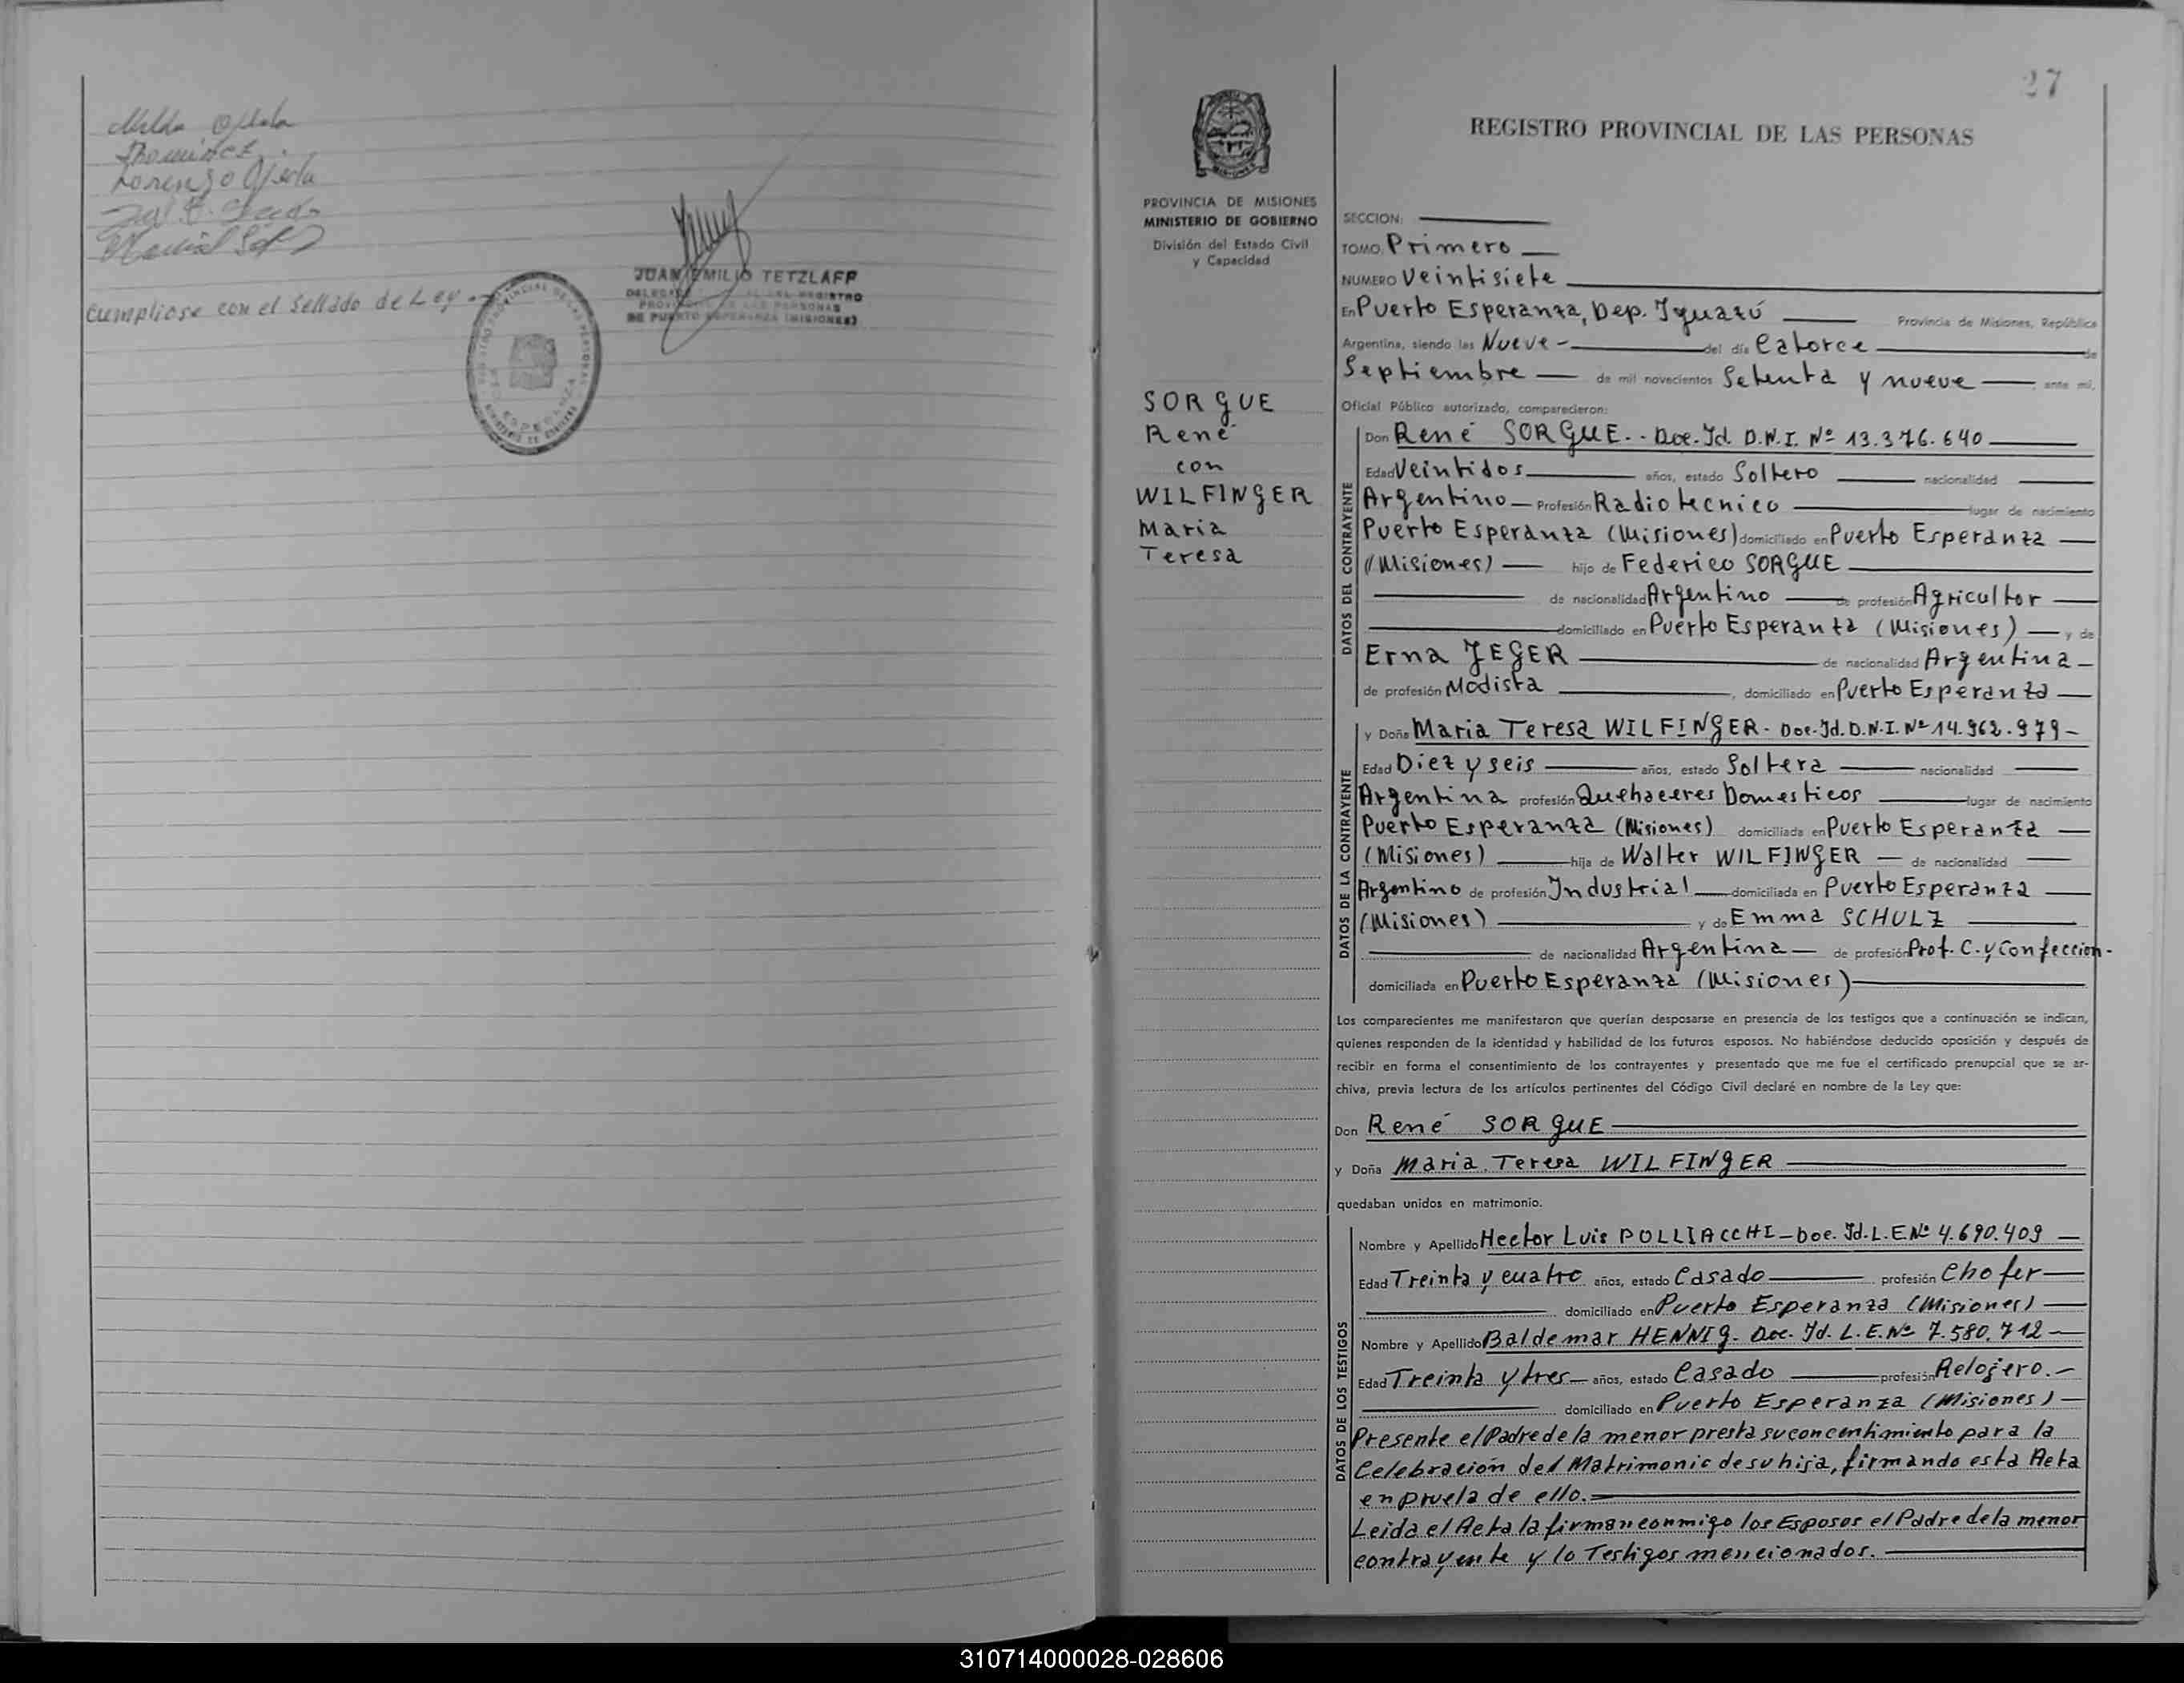 Lorenzo Ojeda
Cumpliose con el Sellado de Ley.-
JUAN EMILIO TETZLAFF
DE PUERTO ESPERANZA (MISIONES)
27
REGISTRO PROVINCIAL DE LAS PERSONAS
PROVINCIA DE MISIONES
MINISTERIO DE GOBIERNO
División del Estado Civil
y Capacidad
SORGUE
René
con
WILFINGER
Maria
Teresa
SECCION:
TOMO Primero
NUMERO Veintisiete
En Puerto Esperanza, Dep. Iguazú Provincia de Misiones, República
Argentina, siendo las Nueve - del día Catorce de
Septiembre de mil novecientos Setenta y nueve ante mí,
Oficial Público autorizado, comparecieron:
DATOS DEL CONTRAYENTE
Don René SORGUE.- Doc. Id. D.N.I. Nº 13.376.640
Edad Veintidos años, estado Soltero nacionalidad
Argentino Profesión Radiotecnico lugar de nacimiento
Puerto Esperanza (Misiones) domiciliado en Puerto Esperanza
(Misiones) hijo de Federico SORGUE
de nacionalidad Argentino de profesión Agricultor
domiciliado en Puerto Esperanza (Misiones) y de
Erna JEGER de nacionalidad Argentina
de profesión Modista, domiciliado en Puerto Esperanza
DATOS DE LA CONTRAYENTE
y Doña Maria Teresa WILFINGER - Doc. Id. D.N.I. Nº 14.962.979-
Edad Diez y seis años, estado Soltera nacionalidad
Argentina profesión Quehaceres Domesticos lugar de nacimiento
Puerto Esperanza (Misiones) domiciliada en Puerto Esperanza
(Misiones) hija de Walter WILFINGER de nacionalidad
Argentino de profesión Industrial domiciliada en Puerto Esperanza
(Misiones) y de Emma SCHULZ
de nacionalidad Argentina de profesión Prof. C. y Confeccion-
domiciliada en Puerto Esperanza (Misiones)
Los comparecientes me manifestaron que querían desposarse en presencia de los testigos que a continuación se indican,
quienes responden de la identidad y habilidad de los futuros esposos. No habiéndose deducido oposición y después de
recibir en forma el consentimiento de los contrayentes y presentado que me fue el certificado prenupcial que se ar-
chiva, previa lectura de los artículos pertinentes del Código Civil declaré en nombre de la Ley que:
Don René SORGUE
y Doña Maria Teresa WILFINGER
quedaban unidos en matrimonio.
DATOS DE LOS TESTIGOS
Nombre y Apellido Hector Luis POLLIACCHI - Doc. Id. L.E. Nº 4.690.409
Edad Treinta y cuatro años, estado Casado profesión Chofer
domiciliado en Puerto Esperanza (Misiones)
Nombre y Apellido Baldemar HENNIG - Doc. Id. L.E. Nº 7.580.712
Edad Treinta y tres años, estado Casado profesión Relojero.-
domiciliado en Puerto Esperanza (Misiones)
Presente el Padre de la menor presta su concentimiento para la
Celebración del Matrimonio de su hija, firmando esta Acta
en pruela de ello.
Leida el Acta la firman conmigo los Esposos el Padre de la menor
contrayente y lo Testigos mencionados.
310714000028-028606